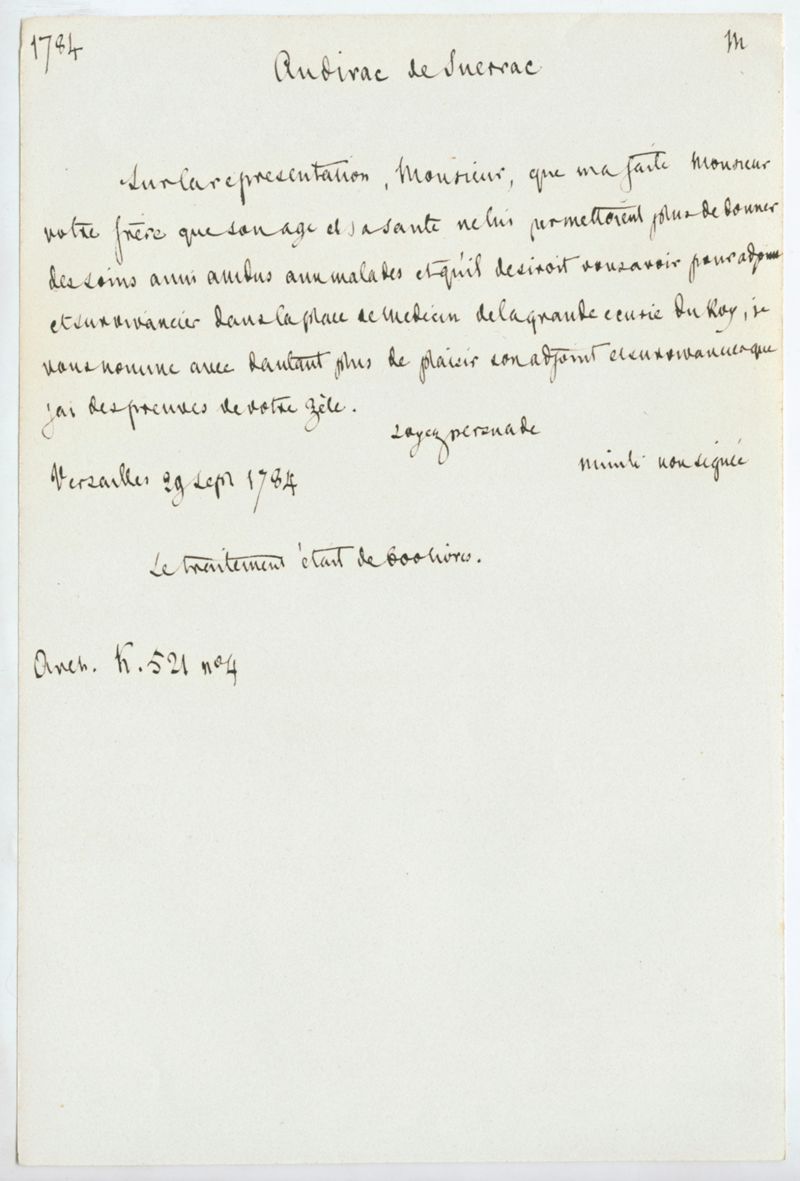 1784
M
Audirac de Suerrac
Sur la representation, Monsieur, que ma faite Monsieur
votre frère que son age et sa santé ne lui permettoient plus de donner
des soins aussi assidus aux malades et qu'il desiroit vous avoir pour adjoint
et survivancier dans la place de Medecin de la grande ecurie du Roy, je
vous nomme avec dautant plus de plaisir son adjoint et survivancier que
jai des preuves de votre zèle.
soyez persuade
Versailles 29 sept 1784
minute non signée
Le traitement était de 600 livres.
Arch. K. 521 no 4